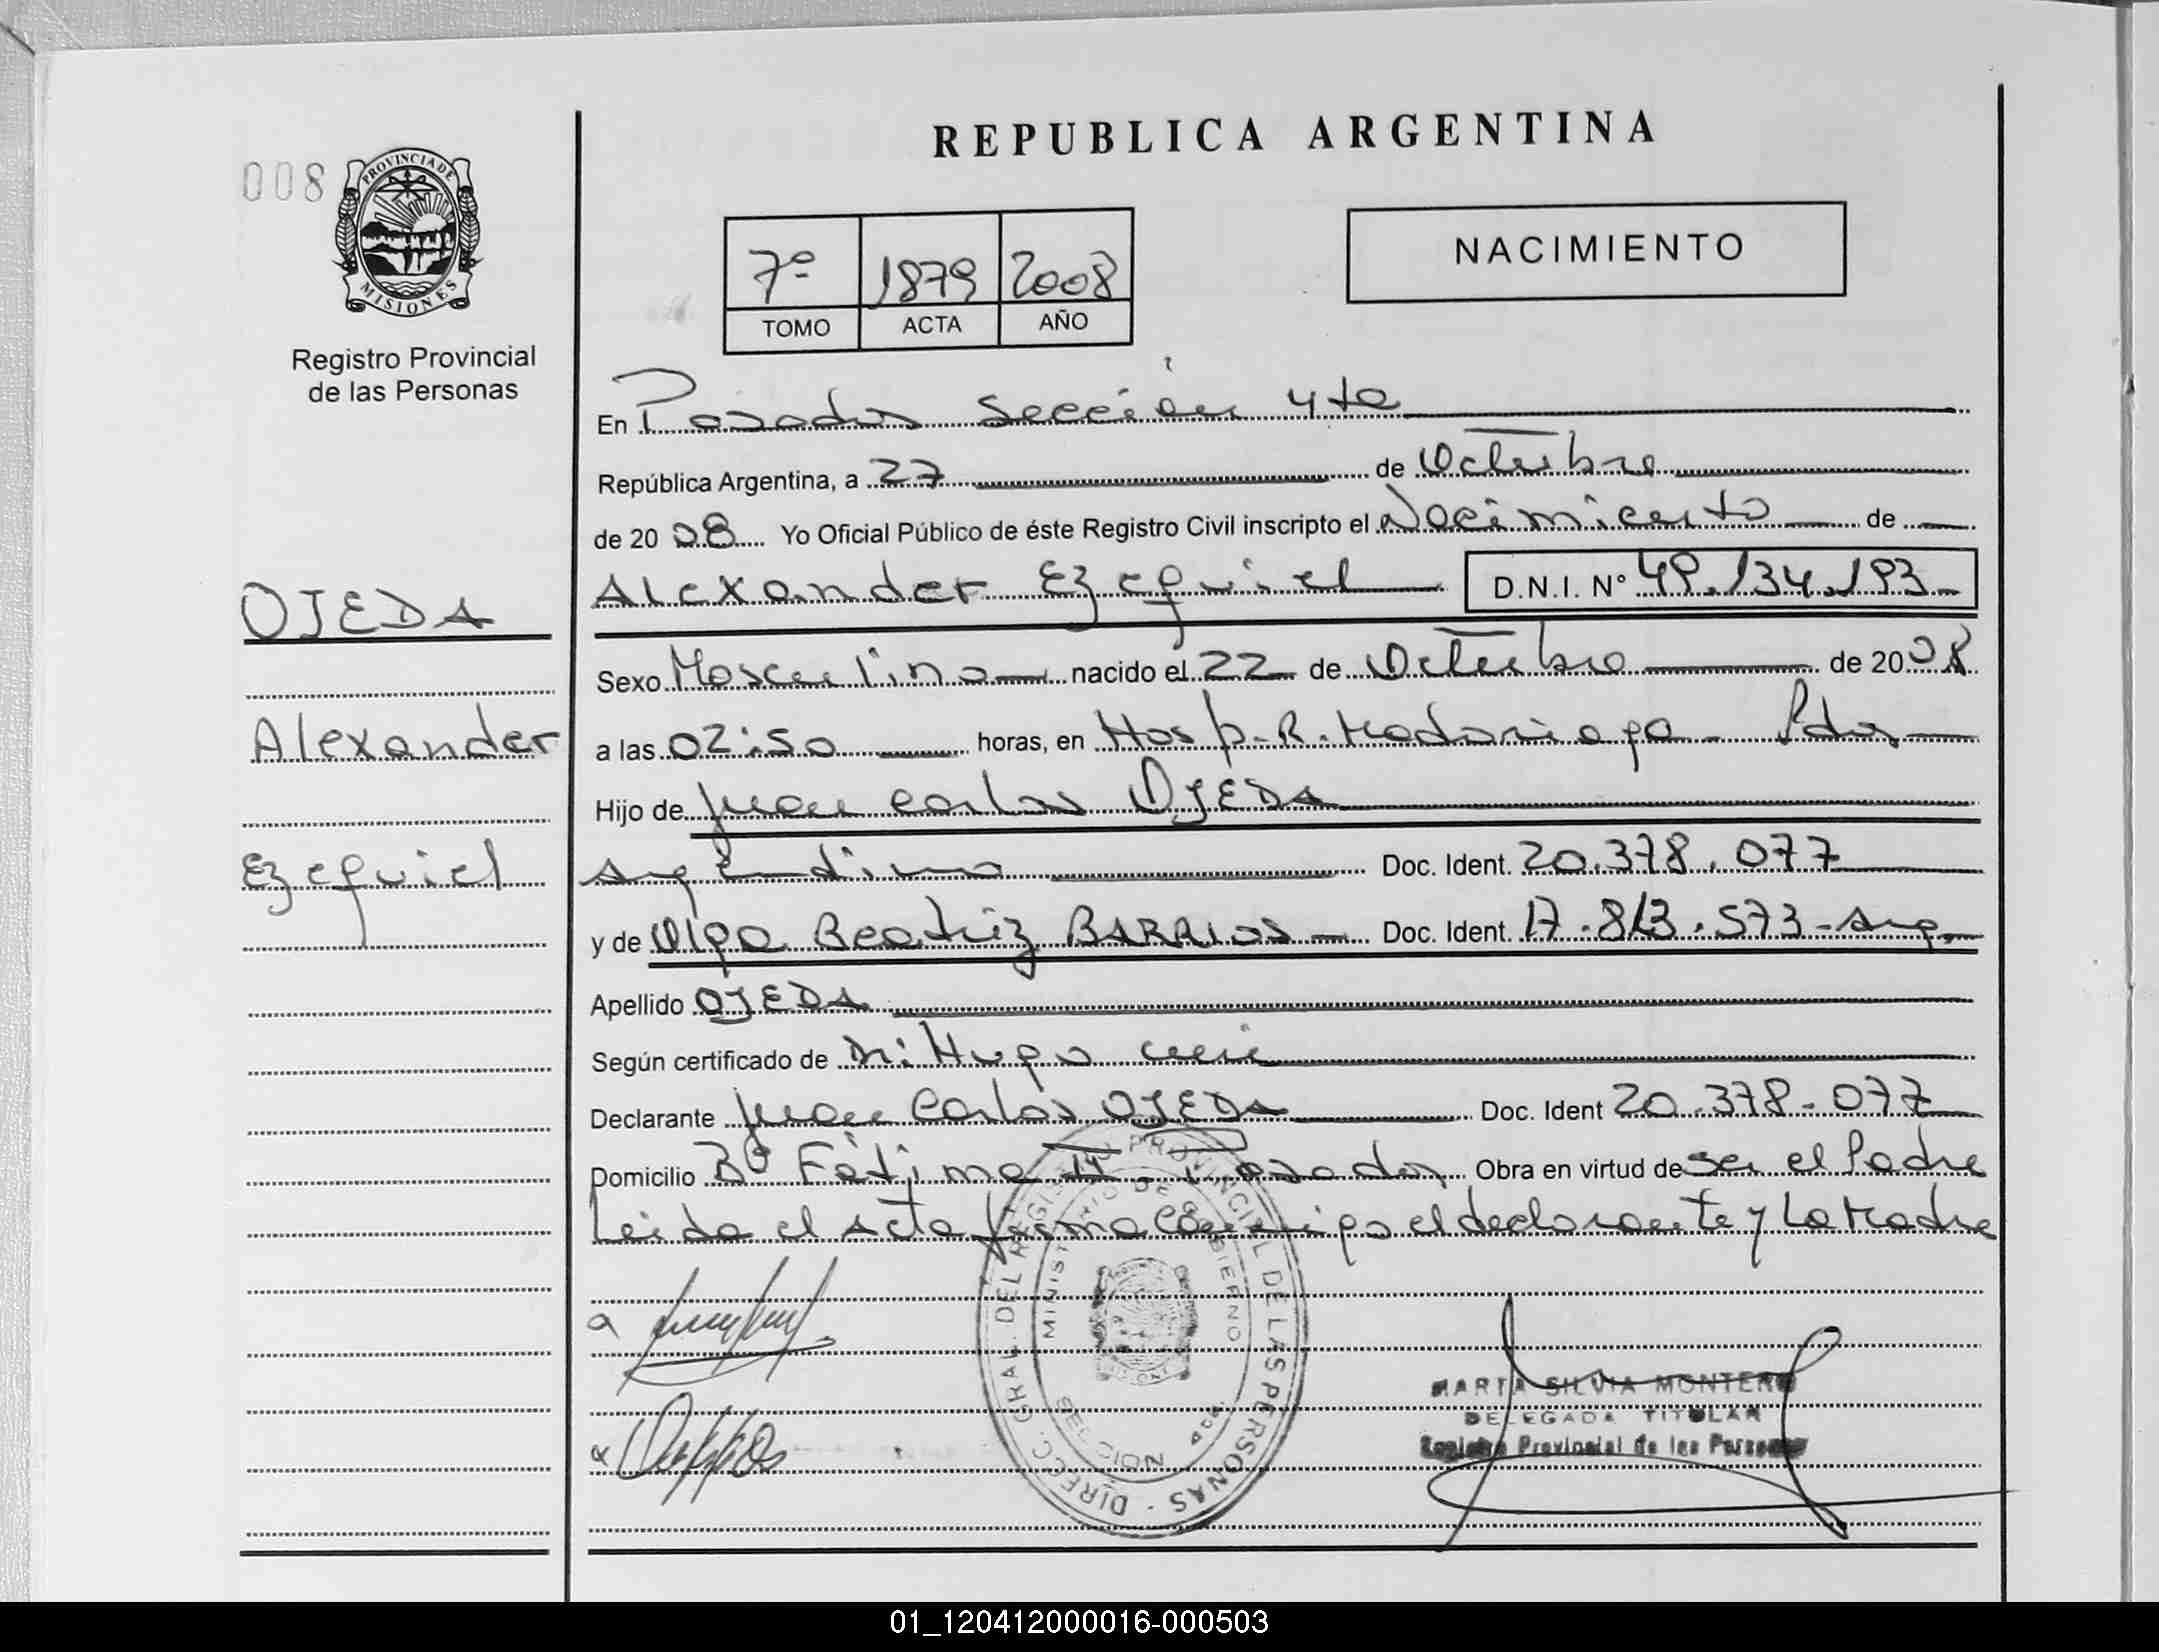 REPUBLICA ARGENTINA
008
PROVINCIA DE
MISIONES
Registro Provincial
de las Personas
7º 1879 2008
TOMO ACTA AÑO
NACIMIENTO
En Posadas Sección 4ta
República Argentina, a 27 de Octubre
de 2008 Yo Oficial Público de éste Registro Civil inscripto el Nacimiento de
Alexander Ezequiel D.N.I. Nº 49.134.193
OJEDA
Alexander
Ezequiel
Sexo Masculino nacido el 22 de Octubre de 2008
a las 02:50 horas, en Hosp. R. Madariaga - Pdas
Hijo de Juan Carlos OJEDA
Argentino Doc. Ident. 20.378.077
y de Olga Beatriz BARRIOS Doc. Ident. 17.813.573 - Arg.
Apellido OJEDA
Según certificado de Dr: Hugo
Declarante Juan Carlos OJEDA Doc. Ident 20.378.077
Domicilio Bº Fátima Posadas Obra en virtud de ser el Padre
Leída el Acta firma conmigo el declarante y La Madre
DIRECC. GRAL. DEL REGISTRO PROVINCIAL DE LAS PERSONAS
MINISTERIO DE GOBIERNO
MARTA SILVIA MONTERO
DELEGADA TITULAR
Registro Provincial de las Personas
01_120412000016-000503